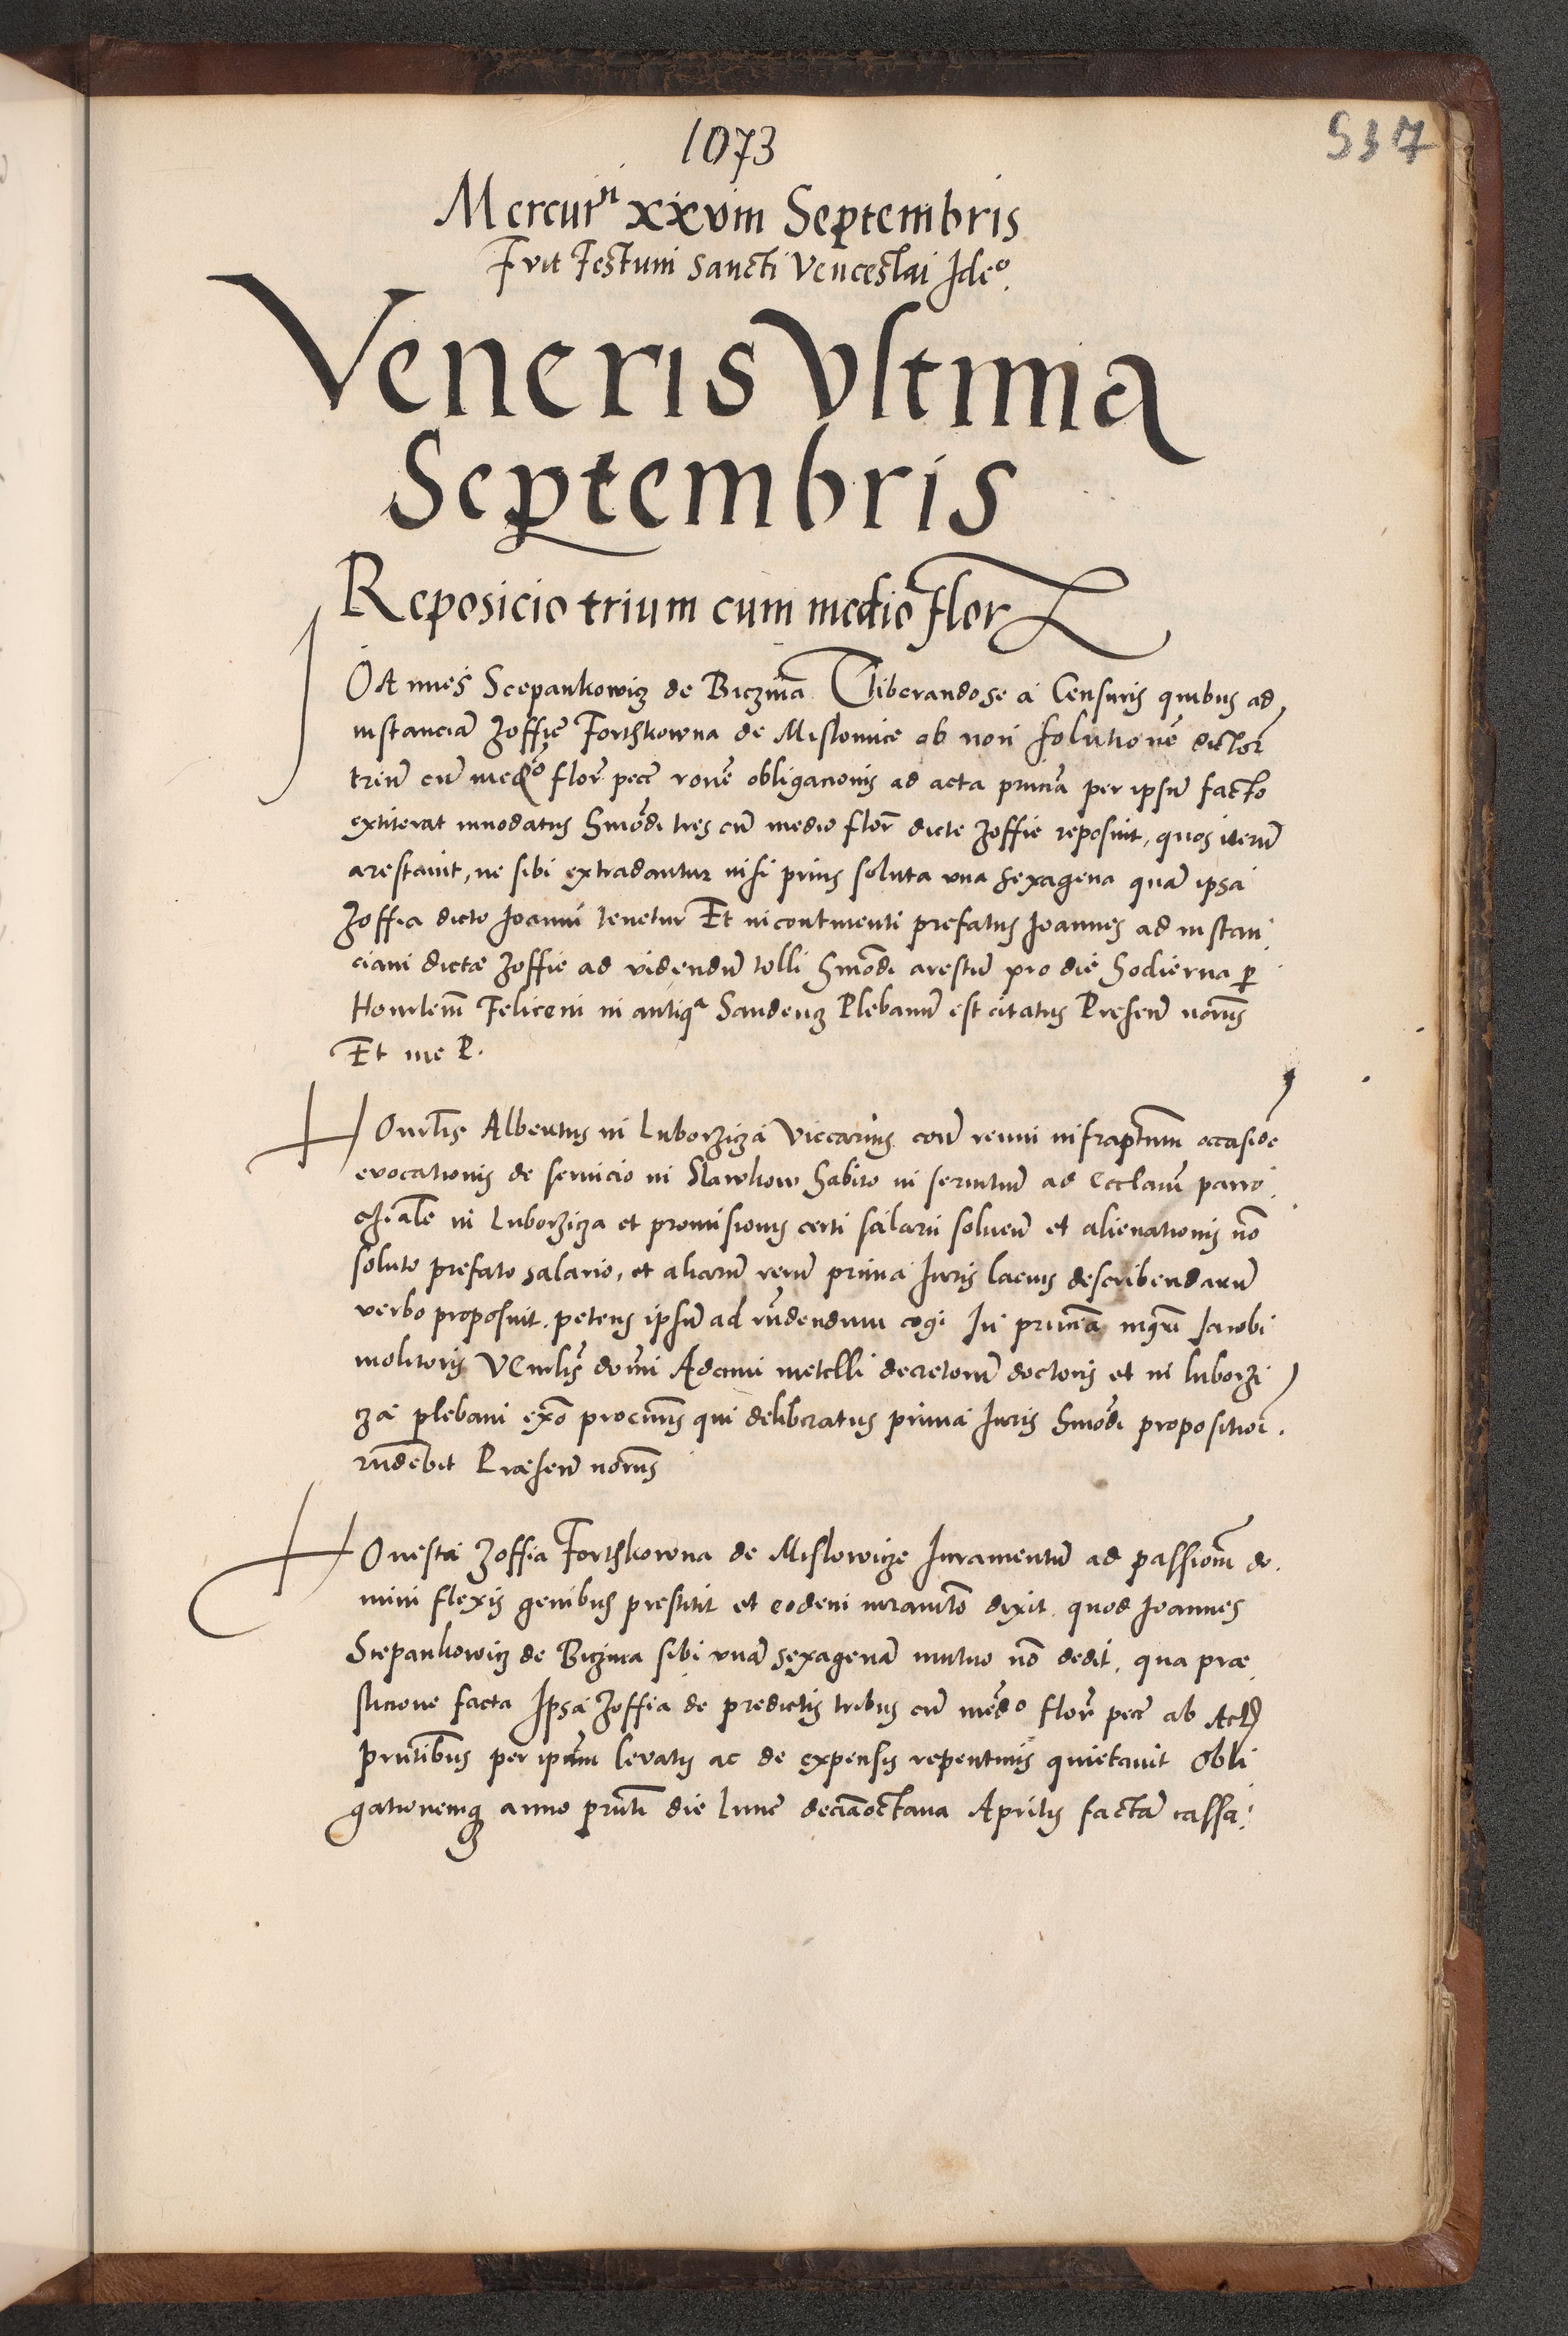 1073
537
Mercurii xxviii Septembris
Fuit Festum Sancti Venceslai Ideo.
Veneris Vltima
Septembris
Reposicio trium cum medio Flor
IOAnnes Scepankowicz de Biczina Liberando se a Censuris quibus ad
instanciã Zoffie Forthkowna de Mislowice ob non solutionẽ dictor̃
triũ cũ medº flor̃ pecẽ ronẽ obligacionis ad acta pñcia per ipsũ facto
extiterat innodatus hmõdi tres cũ medio flor̃ dicte Zoffie reposuit, quos iterũ
arestauit, ne sibi extradantur nisi prius soluta vna sexagena quã ipsa
Zoffia dicto Joanni tenetur Et incontinenti prefatus Joannes ad instan
ciam dictæ Zoffie ad videndũ tolli hmõdi arestũ pro die hodierna p
Honrlem̃ Felicem in antiqª Sandecz Plebanũ est citatus Presen̄ norũs
Et me P.
HOnrlis̃ Albertus in Luborzicza Viccarius coñ reum infraptum̃ occasiõe
evocationis de seruicio in Slawkow habito in seruitiũ ad Ecclam̃ parro
chialẽ in Luborzicza et promisionis certi salarii soluen̄ et alienationis nõ
soluto prefato salario, et aliarũ rerũ prima Juris lacius describendarũ
verbo proposuit, petens ipsũ ad rñdendum cogi In pñcia mgr̃i Jacobi
molitoris VEnrlis̃ domĩ Adami metelli decretorũ doctoris et in luborzi
cza plebani exõ procuris̃ qui deliberatus prima Juris hmõdi propositiõi
rñdebit Præsen̄ norũs
HOnesta Zoffia Forthkowna de Mislowicze Juramentũ ad passionẽ do
mini flexis genibus prestitit et eodem iuramto dixit quod Joannes
Scepankowicz de Biczina sibi vnã sexagenã mutuo nõ dedit, qua præ
sticione facta Ipsa Zoffia de predictis tribus cũ medº flor̃ pecẽ ab Actis
pñtibus per ipsam levatis ac de expensis repentinis quietauit Obli
gationemq anno pñti die Lune decĩa octaua Aprilis factã cassa